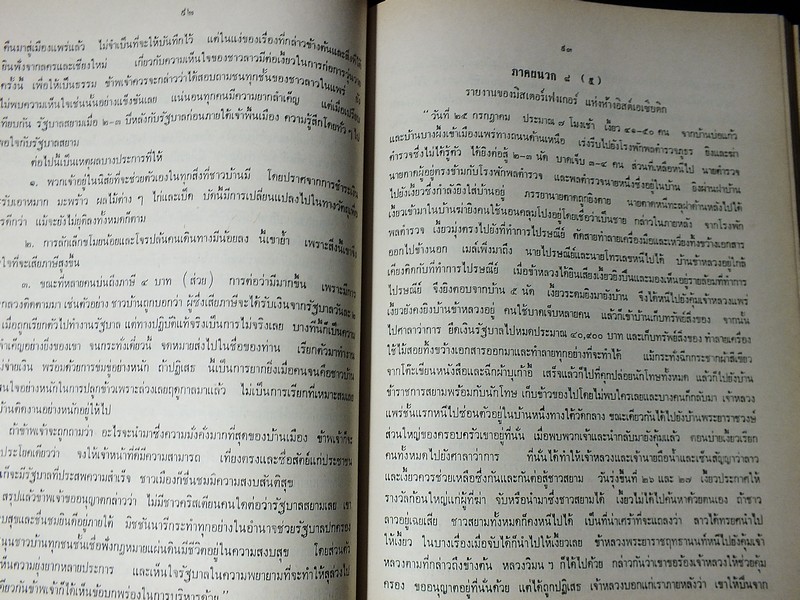 ๕๒
คืนมาสู่เมืองแพร่แล้ว ไม่จำเป็นที่จะให้บันทึกไว้ แต่ในแง่ของเรื่องที่กล่าวข้างต้นและสิ่งที่ได้
ยินฟังจากลครและเชียงใหม่ เกี่ยวกับความเห็นใจของชาวลาวมีต่อเงี้ยวในการก่อการวุ่นวาย
ครั้งนี้ เพื่อให้เป็นธรรม ข้าพเจ้าควรจะกล่าวว่าได้สอบถามชนทุกชั้นของชาวลาวในแพร่ ถึง
ไม่พบความเห็นใจเช่นนั้นอย่างแข็งขันเลย แน่นอนทุกคนมีความยากลำเค็ญ แต่เมื่อเปรียบ
เทียบกัน รัฐบาลสยามเมื่อ ๒-๓ ปีหลังกับรัฐบาลก่อนภายใต้เจ้าพื้นเมือง ความรู้สึกโดยทั่ว ๆ ไป
พอใจกับรัฐบาลสยาม
ต่อไปนี้เป็นเหตุผลบางประการที่ให้
๑. พวกเข้าอยู่ในนิสัยที่จะช่วยตัวเองในทุกสิ่งที่ชาวบ้านมี โดยปราศจากการชำระเงิน
รับเอาหมาก มะพร้าว ผลไม้ต่าง ๆ ไก่และเป็ด บัดนี้มีการเปลี่ยนแปลงไปในทาง
รดีกว่า แม้จะยังไม่ยุติลงทั้งหมดก็ตาม
๒. การลักเล็กขโมยน้อยและโจรปล้นคนเดินทางมีน้อยลง นี้เขาย้ำ เพราะสิ่งนี้เขาพึง
ใจที่จะเสียภาษีสูงขึ้น
๓. ขณะที่หลายคนบ่นถึงภาษี ๔ บาท (ส่วย) การต่อว่ามีมากขึ้น เพราะมีการ
กลวงติดตามมา เช่นตัวอย่าง ชาวบ้านถูกบอกว่า ผู้ซึ่งเสียภาษีจะได้รับเงินจากรัฐบาลวันละ ๒
เมื่อถูกเรียกตัวไปทำงานรัฐบาล แต่ทางปฏิบัติแท้จริงเป็นการไม่จริงเลย บางทีนี้ก็เป็นความ
จำเค็ญอย่างยิ่งของเขา จนกระทั่งเดี๋ยวนี้ จดหมายส่งไปในชื่อของท่าน เรียกตัวมาทำงาน
จ่ายเงิน พร้อมด้วยการขู่อย่างหนัก ถ้าปฏิเสธ นี้เป็นการยากยิ่งเมื่อคนจนคือชาวบ้าน
นใจอย่างหนักในการปลูกข้าวเพราะล่วงเลยฤดูกาลมาแล้ว ไม่เป็นการเรียกที่เหมาะสมเลย
บ้านติดงานอย่างหนักอยู่ให้ไป
ถ้าข้าพเจ้าจะถูกถามว่า อะไรจะนำมาซึ่งความมั่งคั่งมากที่สุดของบ้านเมือง ข้าพเจ้าก็จะ
ประโยคเดียวว่า จงให้เจ้าหน้าที่ดีมีความสามารถ เที่ยงตรงและซื่อสัตย์แก่ประชาชน
ก็จะมีรัฐบาลที่ประสพความสำเร็จ ชาวเมืองก็ชื่นชมมีความสงบสันติสุข
สรุปแล้วข้าพเจ้าขออนุญาตกล่าวว่า ไม่มีชาวคริสเตียนคนใดต่อว่ารัฐบาลสยามเลย เขา
บสุขและชื่นชมยินดีอยู่ภายใต้ มิชชันนารีกระทำทุกอย่างในอำนาจช่วยรัฐบาลปกครอง
นุนชาวบ้านทุกชนชั้นเชื่อฟังกฎหมายแผ่นดินมีชีวิตอยู่ในความสงบสุข โดยส่วนตัว
เห็นความยุ่งยากหลายประการ และเห็นใจรัฐบาลในความพยายามที่จะทำให้ลุล่วงไป
เดียวกันข้าพเจ้าก็ได้เห็นข้อบกพร่องในการบริหารด้วย"
๕๓
ภาคผนวก ๘ (๕)
รายงานของมิสเตอร์เฟงเกอร์ แห่งห้างอิสต์เอเชียติก
"วันที่ ๒๕ กรกฎาคม ประมาณ ๗ โมงเช้า เงี้ยว ๔๐-๕๐ คน จากบ้านบ่อแก้ว
และบ้านบางฝั่งเข้าเมืองแพร่ทางถนนด้านเหนือ เร่งรีบไปยังโรงพักพลตำรวจภูธร ยิงและฆ่า
ตำรวจซึ่งไม่ได้รู้ตัว ได้ยิงต่อสู้ ๒-๓ นัด บาดเจ็บ ๓-๔ คน ส่วนที่เหลือหนีไป นายตำรวจ
นายดาคผู้อยู่ตรงข้ามกับโรงพักพลตำรวจ และพลตำรวจนายหนึ่งซึ่งอยู่ในบ้าน ยิงผ่านฝาบ้าน
ไปยังเงี้ยวซึ่งกำลังยิงใส่บ้านอยู่ ภรรยานายดาคถูกยิงตาย นายดาคหนีทะลุฝาด้านหลังไปได้
เงี้ยวเข้ามาในบ้านฆ่ายิงคนใช้นอนคลุมโปงอยู่โดยเชื่อว่าเป็นชาย กล่าวในภายหลัง จากโรงพัก
พลตำรวจ เงี้ยวมุ่งตรงไปยังที่ทำการไปรษณีย์ ตัดสายทำลายเครื่องมือและเหวี่ยงทิ้งขว้างเอกสาร
ออกไปข้างนอก เมล์เพิ่งมาถึง นายไปรษณีย์และนายโทรเลขหนีไปได้ บ้านข้าหลวงอยู่ใกล้
เคียงติดกับที่ทำการไปรษณีย์ เมื่อข้าหลวงได้ยินเสียงเงี้ยวยิงปืนและมองเห็นอยู่รายล้อมที่ทำการ
ไปรษณีย์ จึงยิงตอบจากบ้าน ๕ นัด เงี้ยวระดมยิงมายังบ้าน จึงได้หนีไปยังคุ้มเจ้าหลวงแพร่
เงี้ยวยังคงยิงบ้านข้าหลวงอยู่ คนใช้บาดเจ็บหลายคน แล้วก็เข้าบ้านเก็บทรัพย์สิ่งของ จากนั้น
ไปศาลาว่าการ ยึดเงินรัฐบาลไปหมดประมาณ ๔๐,๐๐๐ บาท และเก็บทรัพย์สิ่งของ ทำลายเครื่อง
ใช้ไม้สอยทิ้งขว้างเอกสารออกมาและทำลายทุกอย่างที่จะทำได้ แม้กระทั่งฉีกกระชากผ้าสีเขียว
จากโต๊ะเขียนหนังสือและฉีกผ้าบุเก้าอี้ เสร็จแล้วก็ไปที่คุกปล่อยนักโทษทั้งหมด แล้วก็ไปยังบ้าน
ข้าราชการสยามพร้อมกับนักโทษ เก็บข้าวของไปโดยไม่พบใครเลยและบางคนก็กลับมา เจ้าหลวง
แพร่ชั้นแรกหนีไปซ่อนตัวอยู่ในบ้านหนึ่งทางใต้วัดกลาง ขณะเดียวกันได้ไปยังบ้านพระยาราชวงษ์
ส่วนใหญ่ของครอบครัวเขาอยู่ที่นั่น เมื่อพบพวกเจ้าและนำกลับมายังคุ้มแล้ว ตอนบ่ายเงี้ยวเรียก
คนทั้งหมดไปยังศาลาว่าการ ที่นั่นได้ทำให้เจ้าหลวงและเจ้านายถือน้ำและเซ็นสัญญาว่าลาว
และเงี้ยวควรช่วยเหลือซึ่งกันและกันต่อสู้ชาวสยาม วันรุ่งขึ้นที่ ๒๖ และ ๒๗ เงี้ยวประกาศให้
รางวัลก้อนใหญ่แก่ผู้ที่ฆ่า จับหรือนำมาซึ่งชาวสยามได้ เงี้ยวไม่ได้ไปค้นหาด้วยตนเอง ถ้าชาว
ลาวอยู่เฉยเสีย ชาวสยามทั้งหมดก็คงหนีไปได้ เป็นที่น่าเศร้าที่จะแถลงว่า ลาวได้ทรยศนำไป
ให้เงี้ยว ในบางเรื่องเมื่อจับได้ก็นำไปให้เงี้ยวเลย ข้าหลวงพระยาราชฤทธานนท์หนีไปยังคุ้มเจ้า
หลวงตามที่กล่าวถึงข้างต้น หลวงวิมน ฯ ก็ได้ไปด้วย กล่าวกันว่าเขาขอร้องเจ้าหลวงให้ช่วยคุ้ม
ครอง ขออนุญาตอยู่ที่นั่นด้วย แต่ได้ถูกปฏิเสธ เจ้าหลวงบอกแก่เราภายหลังว่า เขาให้ปืนจาก